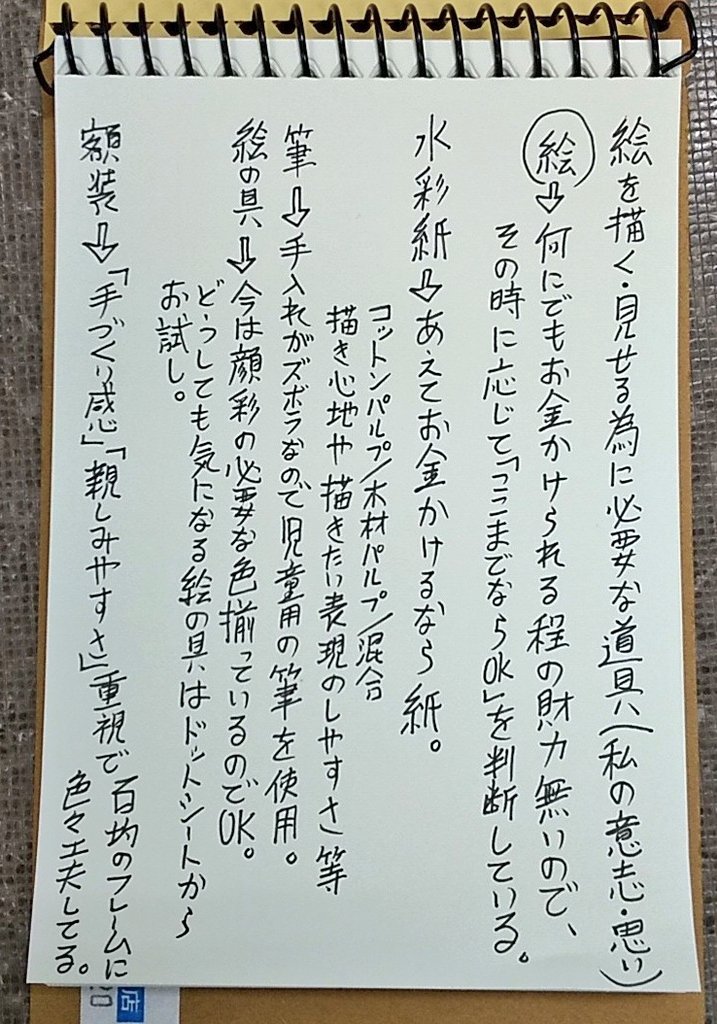 絵を描く・見せる為に必要な道具(私の意志・思い)
絵⇨何にでもお金かけられる程の財力無いので、
その時に応じて「ここまでならOK」を判断している。
水彩紙⇨あえてお金かけるなら紙。
コットンパルプ/木材パルプ/混合
描き心地や描きたい表現のしやすさ等
筆⇨手入れがズボラなので児童用の筆を使用。
絵の具⇨今は顔彩の必要な色揃っているのでOK。
どうしても気になる絵の具はドットシートから
お試し。
額装⇨「手づくり感」「親しみやすさ」重視で百均のフレームに
色々工夫してる。
店
20